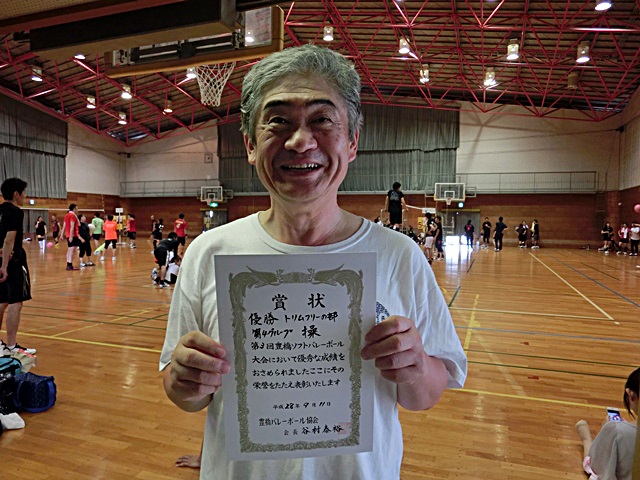 賞状
優勝 トリムフリーの部
第4グループ 操
第3回豊橋ソフトバレーボール
大会において優秀な成績を
おさめられましたここにその
栄誉をたたえ表彰いたします
平成28年9月11日
豊橋バレーボール協会
会長 谷村泰裕